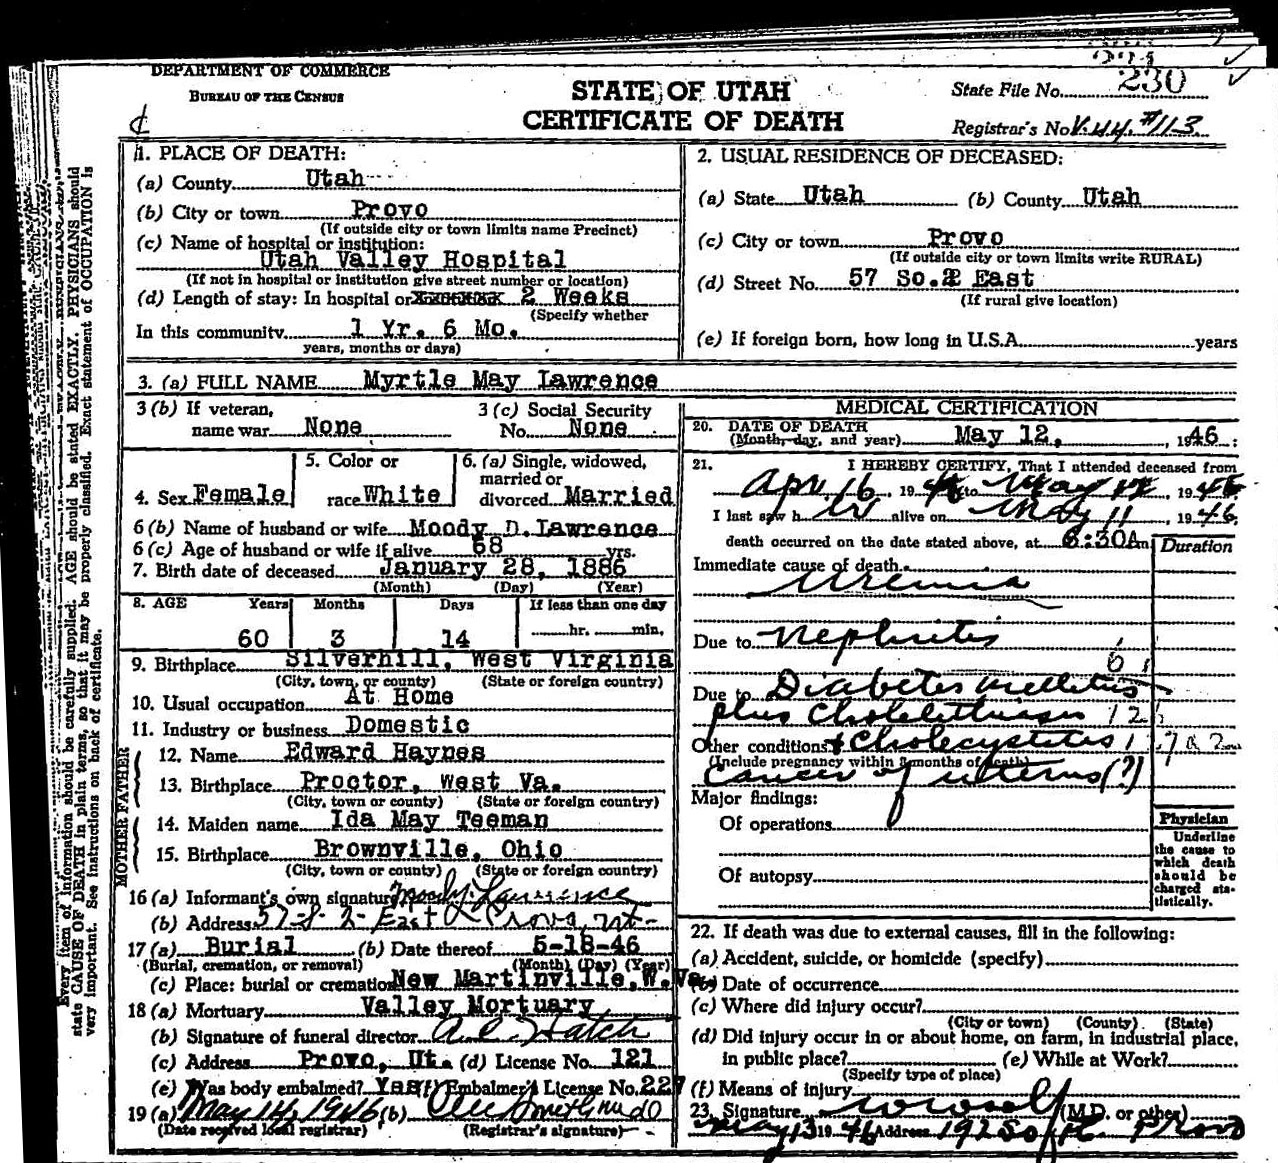 DEPARTMENT OF COMMERCE
BUREAU OF THE CENSUS
STATE OF UTAH
CERTIFICATE OF DEATH
State File No. 230
Registrar's No. V.44. #113
Every item of information should be carefully supplied. AGE should be stated EXACTLY. PHYSICIANS should
state CAUSE OF DEATH in plain terms, so that it may be properly classified. Exact statement of OCCUPATION is
very important. See instructions on back of certificate.
1. PLACE OF DEATH:
(a) County Utah
(b) City or town Provo
(If outside city or town limits name Precinct)
(c) Name of hospital or institution:
Utah Valley Hospital
(If not in hospital or institution give street number or location)
(d) Length of stay: In hospital or 2 Weeks
(Specify whether
In this community 1 Yr. 6 Mo.
years, months or days)
2. USUAL RESIDENCE OF DECEASED:
(a) State Utah (b) County Utah
(c) City or town Provo
(If outside city or town limits write RURAL)
(d) Street No. 57 So. 2 East
(If rural give location)
(e) If foreign born, how long in U.S.A. years
3. (a) FULL NAME Myrtle May Lawrence
3 (b) If veteran, 3 (c) Social Security
name war None No. None
5. Color or 6. (a) Single, widowed,
married or
4. Sex Female race White divorced Married
6 (b) Name of husband or wife Moody D. Lawrence
6 (c) Age of husband or wife if alive 68 yrs.
7. Birth date of deceased January 28, 1886
(Month) (Day) (Year)
8. AGE Years Months Days If less than one day
60 3 14 hr. min.
9. Birthplace Silverhill, West Virginia
(City, town, or county) (State or foreign country)
10. Usual occupation At Home
11. Industry or business Domestic
FATHER
12. Name Edward Haynes
13. Birthplace Proctor, West Va.
(City, town or county) (State or foreign country)
MOTHER
14. Maiden name Ida May Teeman
15. Birthplace Brownville, Ohio
(City, town, or county) (State or foreign country)
16 (a) Informant's own signature Moody Lawrence
(b) Address 57 S. 2 East Provo, Ut
17 (a) Burial (b) Date thereof 5-18-46
(Burial, cremation, or removal) (Month) (Day) (Year)
(c) Place: burial or cremation New Martinville, W. Va.
18 (a) Mortuary Valley Mortuary
(b) Signature of funeral director Hatch
(c) Address Provo, Ut. (d) License No. 121
(e) Was body embalmed? Yes (f) Embalmer's License No. 227
19 (a) May 14, 1946 (b)
(Date received local registrar) (Registrar's signature)
MEDICAL CERTIFICATION
20. DATE OF DEATH
(Month, day, and year) May 12, 1946
21. I HEREBY CERTIFY, That I attended deceased from
Apr 16, 1946 to May 12 1946
I last saw her alive on May 11, 1946,
death occurred on the date stated above, at 6:30 Am
Duration
Immediate cause of death
Uremia
Due to Nephritis
Due to Diabetes Mellitus
plus Cholelithiasis
Other conditions + Cholecystitis
(Include pregnancy within 3 months of death)
Cancer of uterus (?)
Major findings:
Of operations
Of autopsy
Physician
Underline
the cause to
which death
should be
charged sta-
tistically.
22. If death was due to external causes, fill in the following:
(a) Accident, suicide, or homicide (specify)
(b) Date of occurrence
(c) Where did injury occur?
(City or town) (County) (State)
(d) Did injury occur in or about home, on farm, in industrial place,
in public place? (e) While at Work?
(Specify type of place)
(f) Means of injury
23. Signature (M.D. or other)
May 13 1946 Address Provo